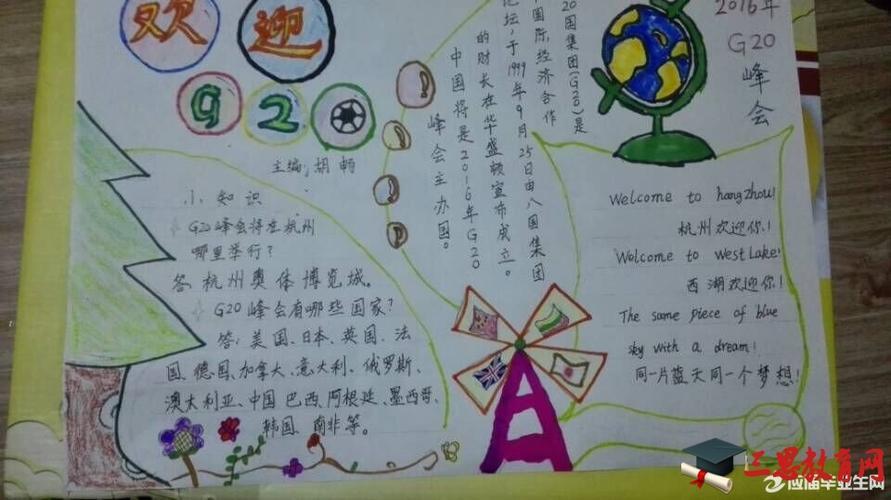 欢迎
G20
主编:胡畅
小知识
G20峰会将在杭州
哪里举行?
答杭州奥体博览城。
G20峰会有哪些国家?
答:美国、日本、英国、法
国、德国、加拿大、意大利、俄罗斯、
澳大利亚、中国巴西、阿根廷、墨西哥、
韩国、南非等。
20国集团(G20)是
国际经济合作
论坛,于1999年9月25日由八国集团
的财长在华盛顿宣布成立。
中国将是2016年G20
峰会主办国。
2016年
G20
峰会
Welcome to hangzhou!
杭州欢迎你!
Welcome to westLake!
西湖欢迎你!
The same piece of blue
sky with a dream!
同一片蓝天同一个梦想!
三思教育网
应届毕业生网